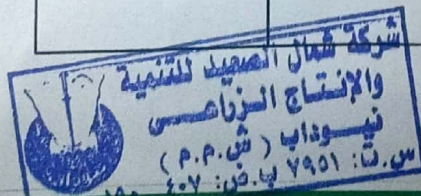 شركة شمال الصعيد للتنمية
والإنتاج الزراعى
نيوداب (ش.م.م)
س.ت: ٧٩٥١ ب.ض: ٤٠٧